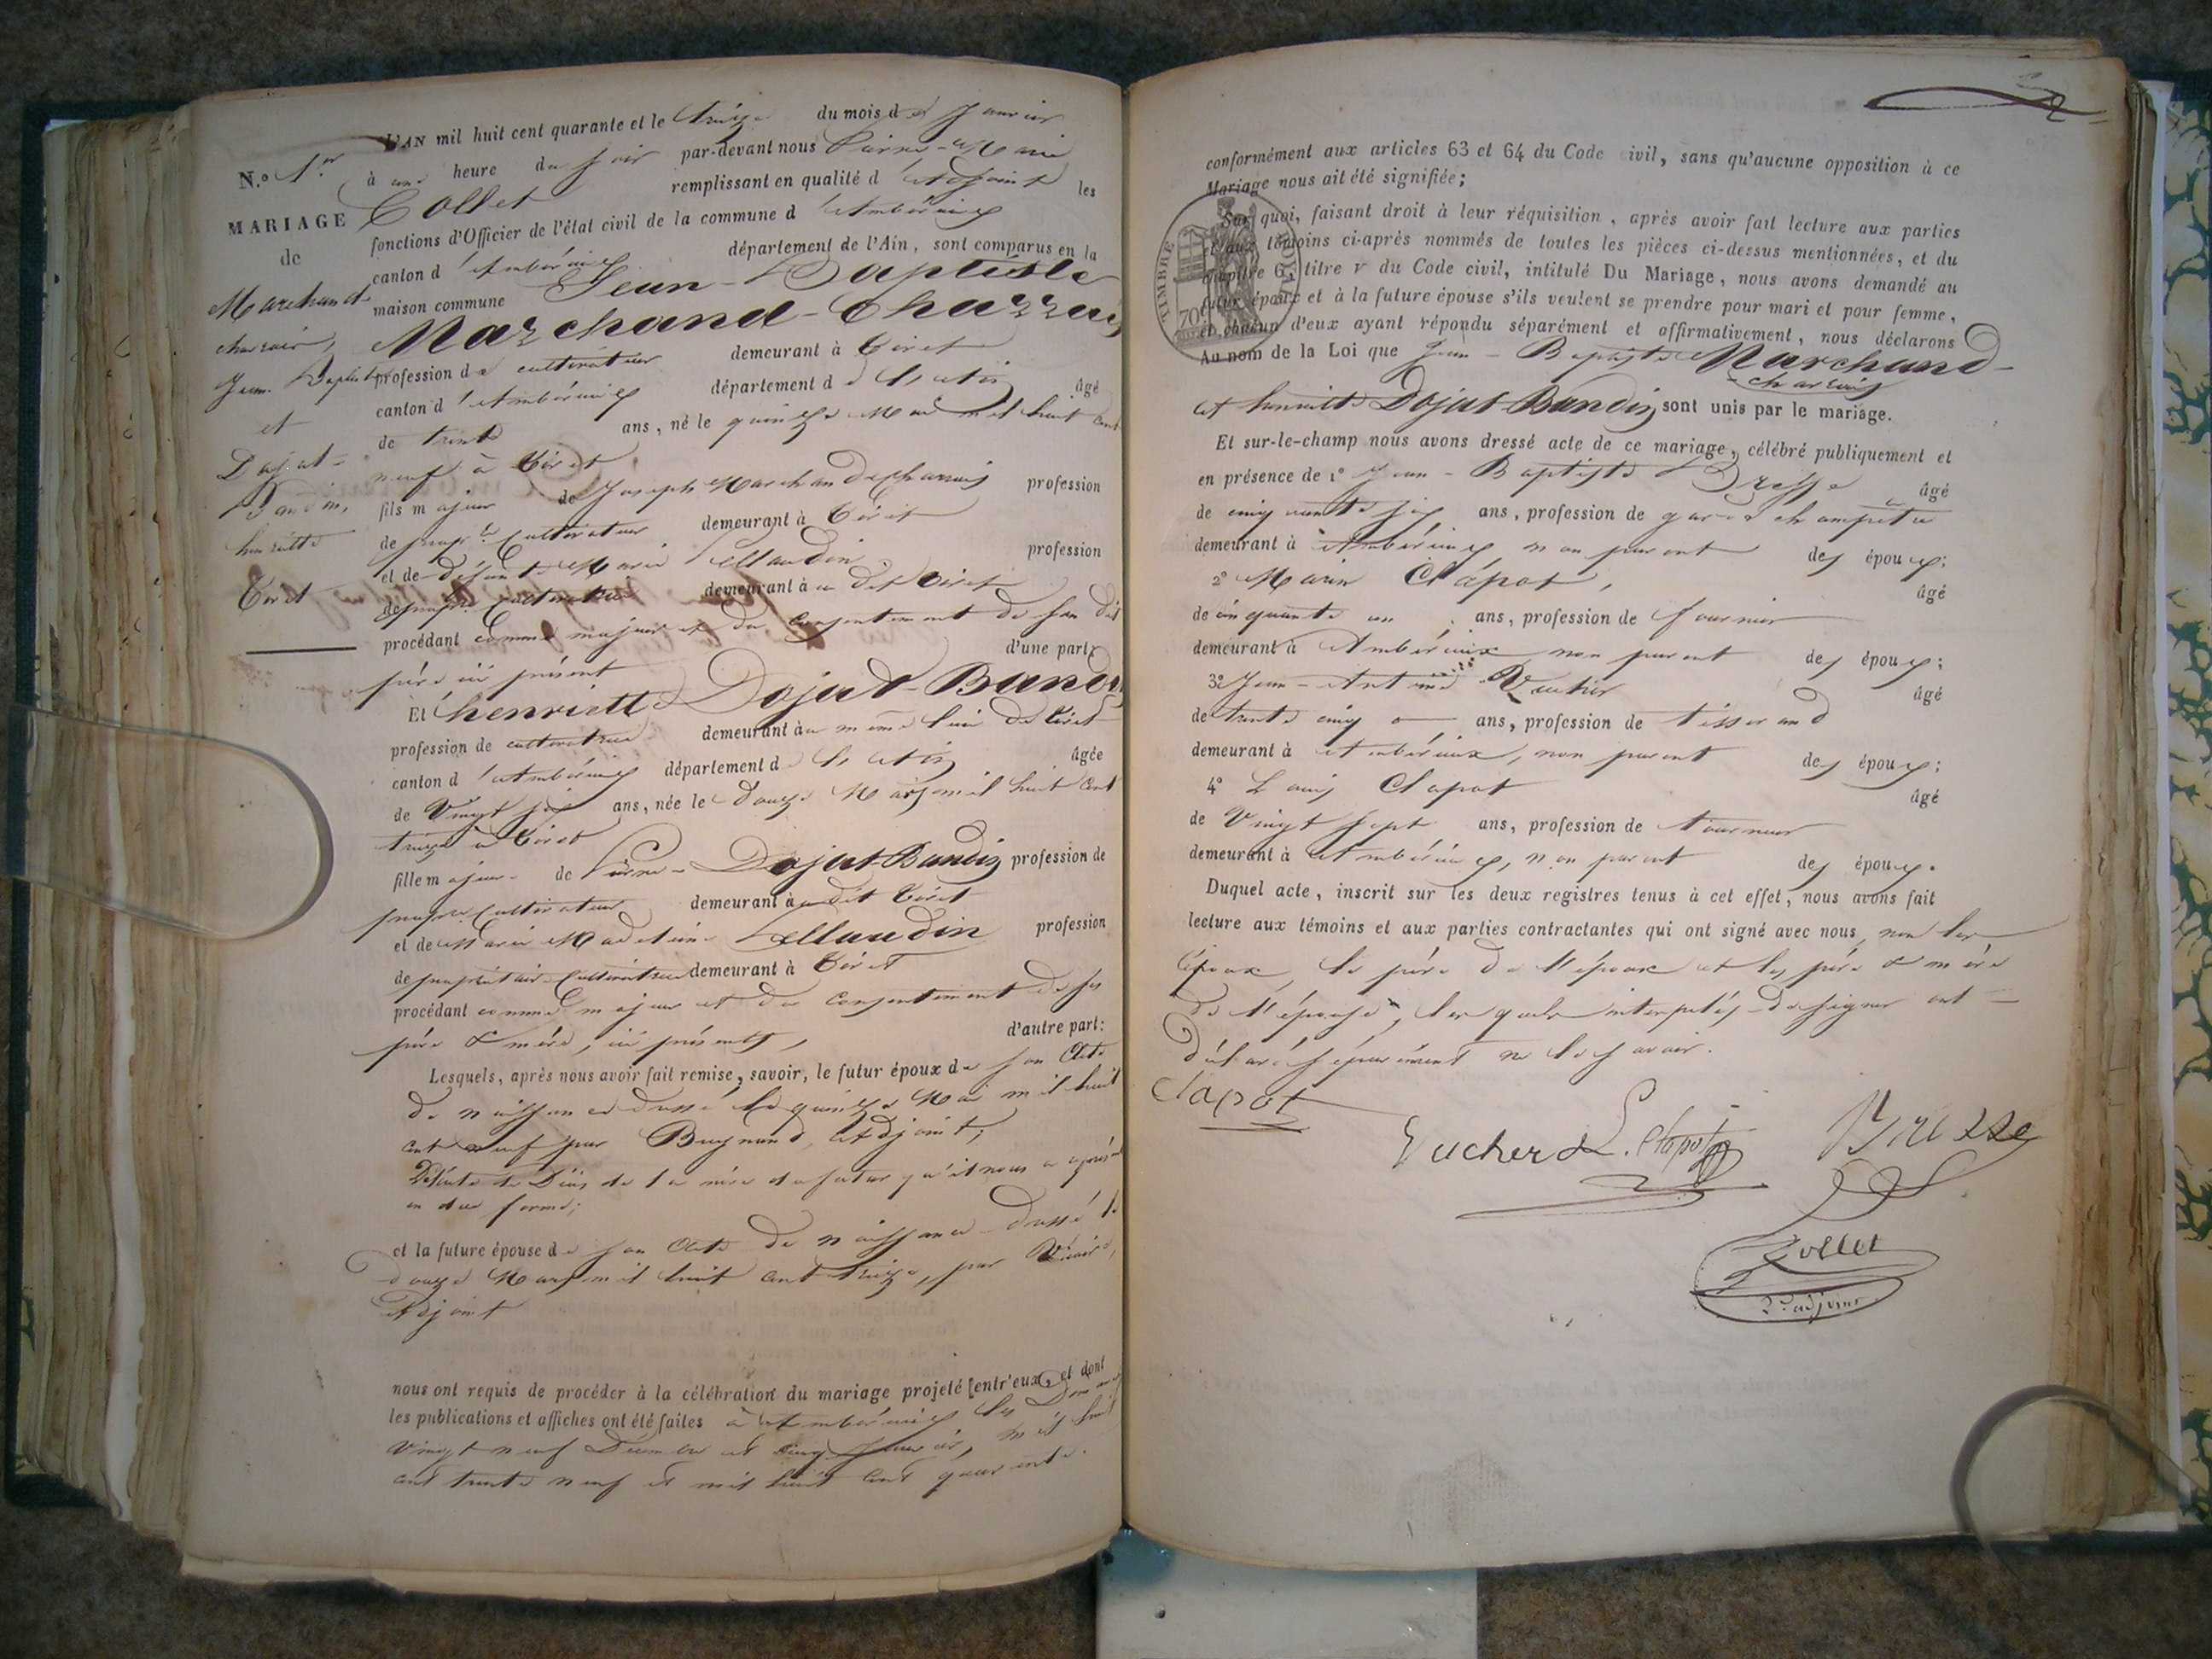 L'AN mil huit cent quarante et le treize du mois de Janvier
N.o 1.er
à une heure du soir par-devant nous Pierre-Marie
Collet remplissant en qualité d'Adjoint les
MARIAGE
fonctions d'Officier de l'état civil de la commune d'Ambérieux
de
canton d'Ambérieux département de l'Ain, sont comparus en la
maison commune Jean-Baptiste
Marchand-
charvais,
Jean Baptiste
et
Dojat-
Bandin,
henriette
Tiret
Marchand-Charvais
profession de cultivateur demeurant à Tiret
canton d'Ambérieux département de l'Ain âgé
de trente ans, né le quinze Mai mil huit cent
neuf à Tiret
fils majeur de Joseph Marchand-charvais profession
de propre cultivateur demeurant à Tiret
et de défunte Marie profession
de propre cultivatrice demeurant à au dit Tiret
procédant comme majeur et du consentement de son dit
père ici présent d'une part,
Et henriette Dojat-Bandin
profession de cultivatrice demeurant à au même lieu de Tiret
canton d'Ambérieux département de l'Ain âgée
de Vingt six ans, née le douze Mars mil huit cent
treize à Tiret
fille majeure de Pierre-Dojat-Bandin profession de
propre cultivateur demeurant à au dit Tiret
et de Marie Madeleine profession
de propriétaire Cultivatrice demeurant à Tiret
procédant comme majeure et du consentement de ses
père & mère, ici présents, d'autre part:
Lesquels, après nous avoir fait remise, savoir, le futur époux de son Acte
de naissance dressé le quinze Mai mil huit
cent neuf par Adjoint;
de la mère du futur qu'il nous a
en due forme;
et la future épouse de son Acte de naissance dressé le
douze Mars mil huit cent treize, par
Adjoint
nous ont requis de procéder à la célébration du mariage projeté entr'eux, et dont
les publications et affiches ont été faites à Ambérieux les
Vingt neuf Décembre et cinq Janvier, mil huit
cent trente neuf et mil huit cent quarante.
2
conformément aux articles 63 et 64 du Code civil, sans qu'aucune opposition à ce
Mariage nous ait été signifiée;
Sur quoi, faisant droit à leur réquisition, après avoir fait lecture aux parties
et aux témoins ci-après nommés de toutes les pièces ci-dessus mentionnées, et du
chapitre 6, titre v du Code civil, intitulé Du Mariage, nous avons demandé au
futur époux et à la future épouse s'ils veulent se prendre pour mari et pour femme,
et chacun d'eux ayant répondu séparément et affirmativement, nous déclarons
TIMBRE ROYAL
70c
Au nom de la Loi que Jean-Baptiste Marchand-
charvais
et henriette Dojat-Bandin sont unis par le mariage.
Et sur-le-champ nous avons dressé acte de ce mariage, célébré publiquement et
en présence de 1o Jean-Baptiste âgé
de cinquante six ans, profession de garde champetre
demeurant à Ambérieux, non parent des époux;
2o Marin Clapot, âgé
de cinquante un ans, profession de
demeurant à Ambérieux non parent des époux;
3o Jean-Antoine âgé
de trente cinq ans, profession de tisserand
demeurant à Ambérieux, non parent des époux;
4o Louis Clapot âgé
de Vingt sept ans, profession de tourneur
demeurant à Ambérieux, non parent des époux.
Duquel acte, inscrit sur les deux registres tenus à cet effet, nous avons fait
lecture aux témoins et aux parties contractantes qui ont signé avec nous, non les
époux, le père de l'époux et les père & mère
de l'épouse, lesquels interpelés de signer ont
déclaré séparément ne le savoir.
Clapot
Vucher L. Clapot
Collet
2.e adjoint